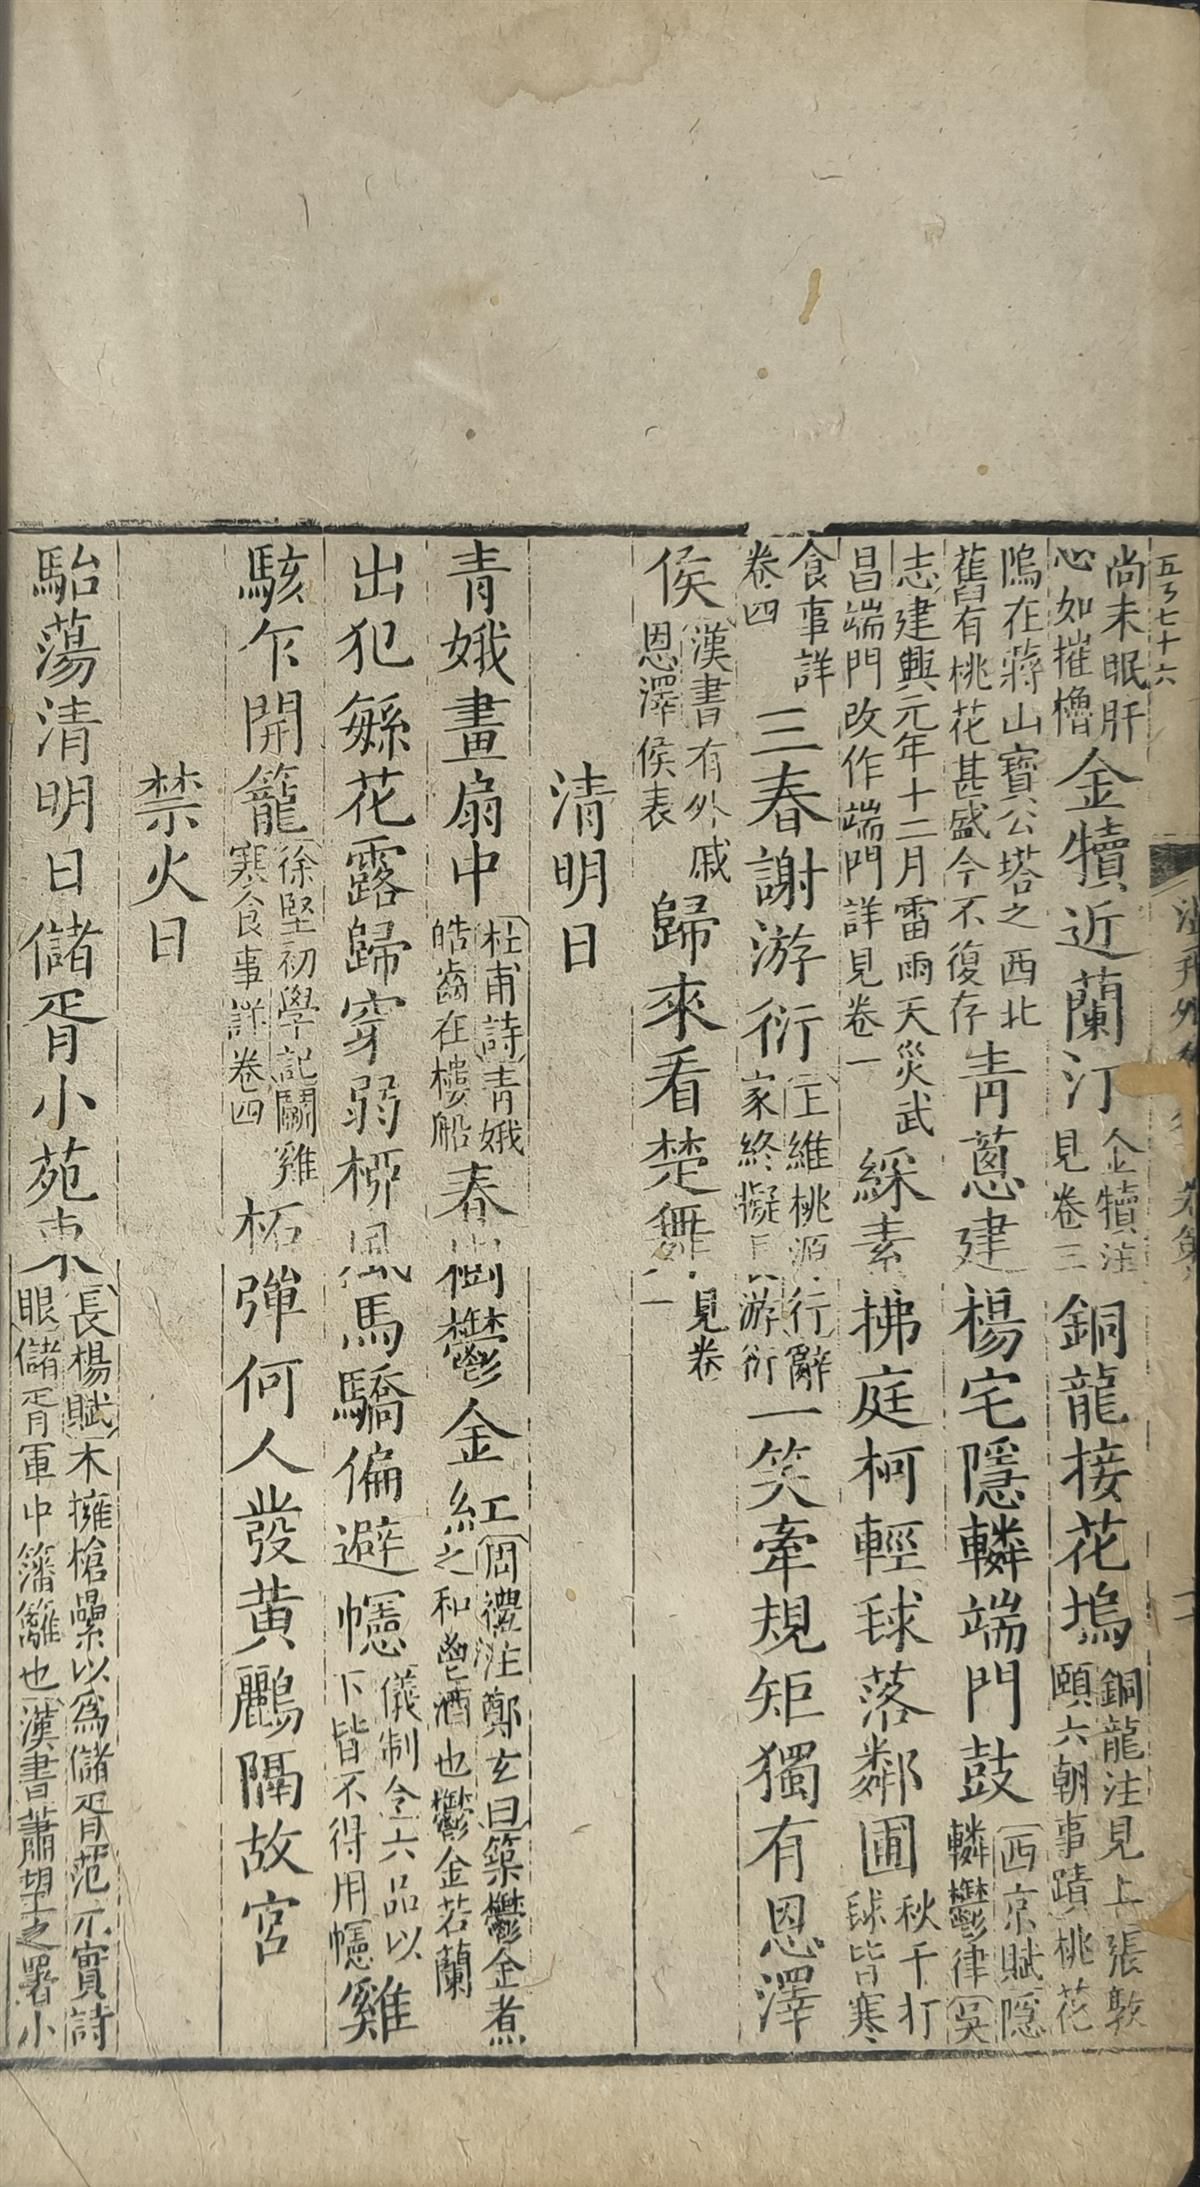 五㇉七十六
尚未眠肝心如摧櫓金犢近蘭汀金犢注見卷三銅龍接花塢銅龍注見上張敦頤六朝事蹟桃花
隖在蔣山寶公塔之西北舊有桃花甚盛今不復存青蔥建楊宅隱轔端門鼓西京賦隱轔鬱律吳
志建興元年十二月雷雨天災武昌端門改作端門詳見卷一綵素拂庭柯輕毬落鄰圃秋千打毬皆寒
食事詳卷四三春謝游衍王維桃源行辭家終擬長游衍一笑牽規矩獨有恩澤
侯漢書有外戚恩澤侯表歸來看楚舞見卷一
清明日
青娥畫扇中杜甫詩青娥皓齒在樓船春樹鬱金紅周禮注鄭玄曰築鬱金煮之和鬯酒也鬱金若蘭
出犯繁花露歸穿弱柳風馬驕偏避幰儀制令六品以下皆不得用幰雞
駭乍開籠徐堅初學記鬭雞寒食事詳卷四柘彈何人發黃鸝隔故宮
禁火日
駘蕩清明日儲胥小苑東長楊賦木擁槍纍以為儲胥范元實詩眼儲胥軍中籓籬也漢書蕭望之署小